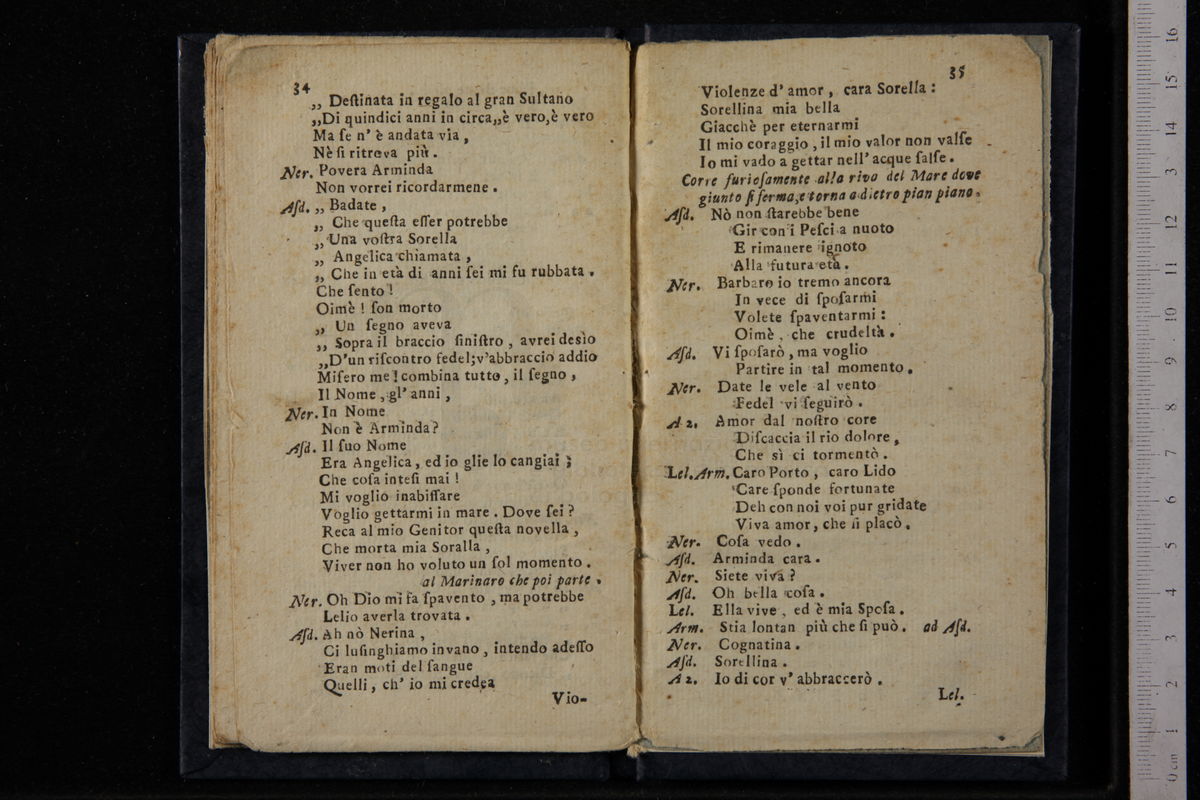 34
„ Deſtinata in regalo al gran Sultano
„Di quindici anni in circa„è vero,è vero
Ma ſe n' è andata via ,
Nè ſi ritrova più .
Ner. Povera Arminda
Non vorrei ricordarmene .
Aſd. „ Badate ,
„ Che queſta eſſer potrebbe
„ Una voſtra Sorella
„ Angelica chiamata ,
„ Che in età di anni ſei mi fu rubbata .
Che ſento !
Oimè ! ſon morto
„ Un ſegno aveva
„ Sopra il braccio ſiniſtro , avrei desìo
„D'un riſcontro fedel;v'abbraccio addio
Miſero me ! combina tutto , il ſegno ,
Il Nome , gl' anni ,
Ner. In Nome
Non è Arminda?
Aſd. Il ſuo Nome
Era Angelica , ed io glie lo cangiai ;
Che coſa inteſi mai !
Mi voglio inabiſſare
Voglio gettarmi in mare . Dove ſei ?
Reca al mio Genitor queſta novella ,
Che morta mia Soralla ,
Viver non ho voluto un ſol momento .
al Marinaro che poi parte .
Ner. Oh Dio mi fa ſpavento , ma potrebbe
Lelio averla trovata .
Aſd. Ah nò Nerina ,
Ci luſinghiamo invano , intendo adeſſo
Eran moti del ſangue
Quelli , ch' io mi credea
Vio-
35
Violenze d' amor , cara Sorella :
Sorellina mia bella
Giacchè per eternarmi
Il mio coraggio , il mio valor non valſe
Io mi vado a gettar nell' acque ſalſe .
Corre furioſamente alla riva del Mare dove
giunto ſi ferma,e torna a dietro pian piano.
Aſd. Nò non ſtarebbe bene
Gir con i Peſci a nuoto
E rimanere ignoto
Alla futura età .
Ner. Barbaro io tremo ancora
In vece di ſpoſarmi
Volete ſpaventarmi :
Oimè , che crudeltà .
Aſd. Vi ſpoſarò , ma voglio
Partire in tal momento .
Ner. Date le vele al vento
Fedel vi ſeguirò .
A 2. Amor dal noſtro core
Diſcaccia il rio dolore ,
Che sì ci tormentò .
Lel.Arm. Caro Porto , caro Lido
Care ſponde fortunate
Deh con noi voi pur gridate
Viva amor, che ſi placò .
Ner. Coſa vedo .
Aſd. Arminda cara .
Ner. Siete viva ?
Aſd. Oh bella coſa .
Lel. Ella vive , ed è mia Spoſa .
Arm. Stia lontan più che ſi può . ad Aſd.
Ner. Cognatina .
Aſd. Sorellina .
A 2. Io di cor v' abbraccerò .
Lel.
0 cm 1 2 3 4 5 6 7 8 9 10 11 12 13 14 15 16